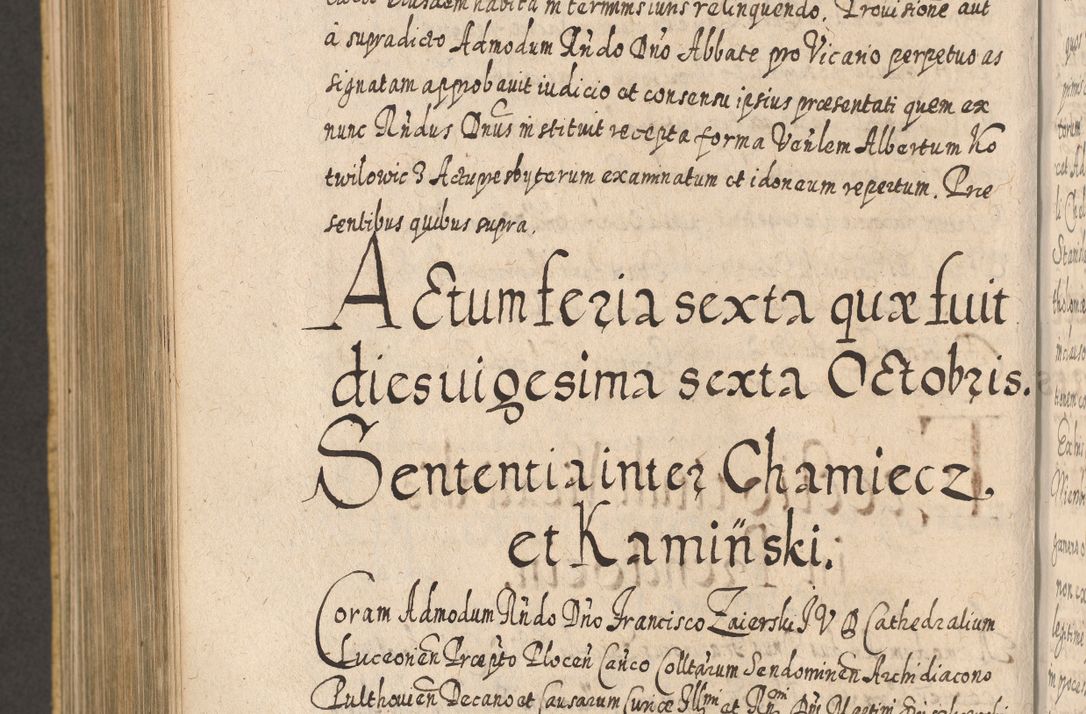 à supradicto Admodum Rñdo Dño Abbate pro Vicario perpetuo as
signatam approbavit iudicio et consensu ipsius præsentati quem ex
nunc Rñdus Dñus instituit recepta forma Vañlem Albertum Ko
twilowicz Actu presbyterum examinatum et idoneum repertum. Præ
sentibus quibus supra.
Actum feria sexta quæ fuit
dies uigesima sexta Octobris.
Sententia inter Chamiecz.
et Kamiński.
Coram Admodum Rñdo Dño Francisco Zaierski IVD Cathedralium
Luceorien̄ Præpto Plocen̄ Canco Colltarum Sendomirien̄ Archidiacono
Pulthouien̄ Decano et Causarum Curiæ Illmi et Rmi